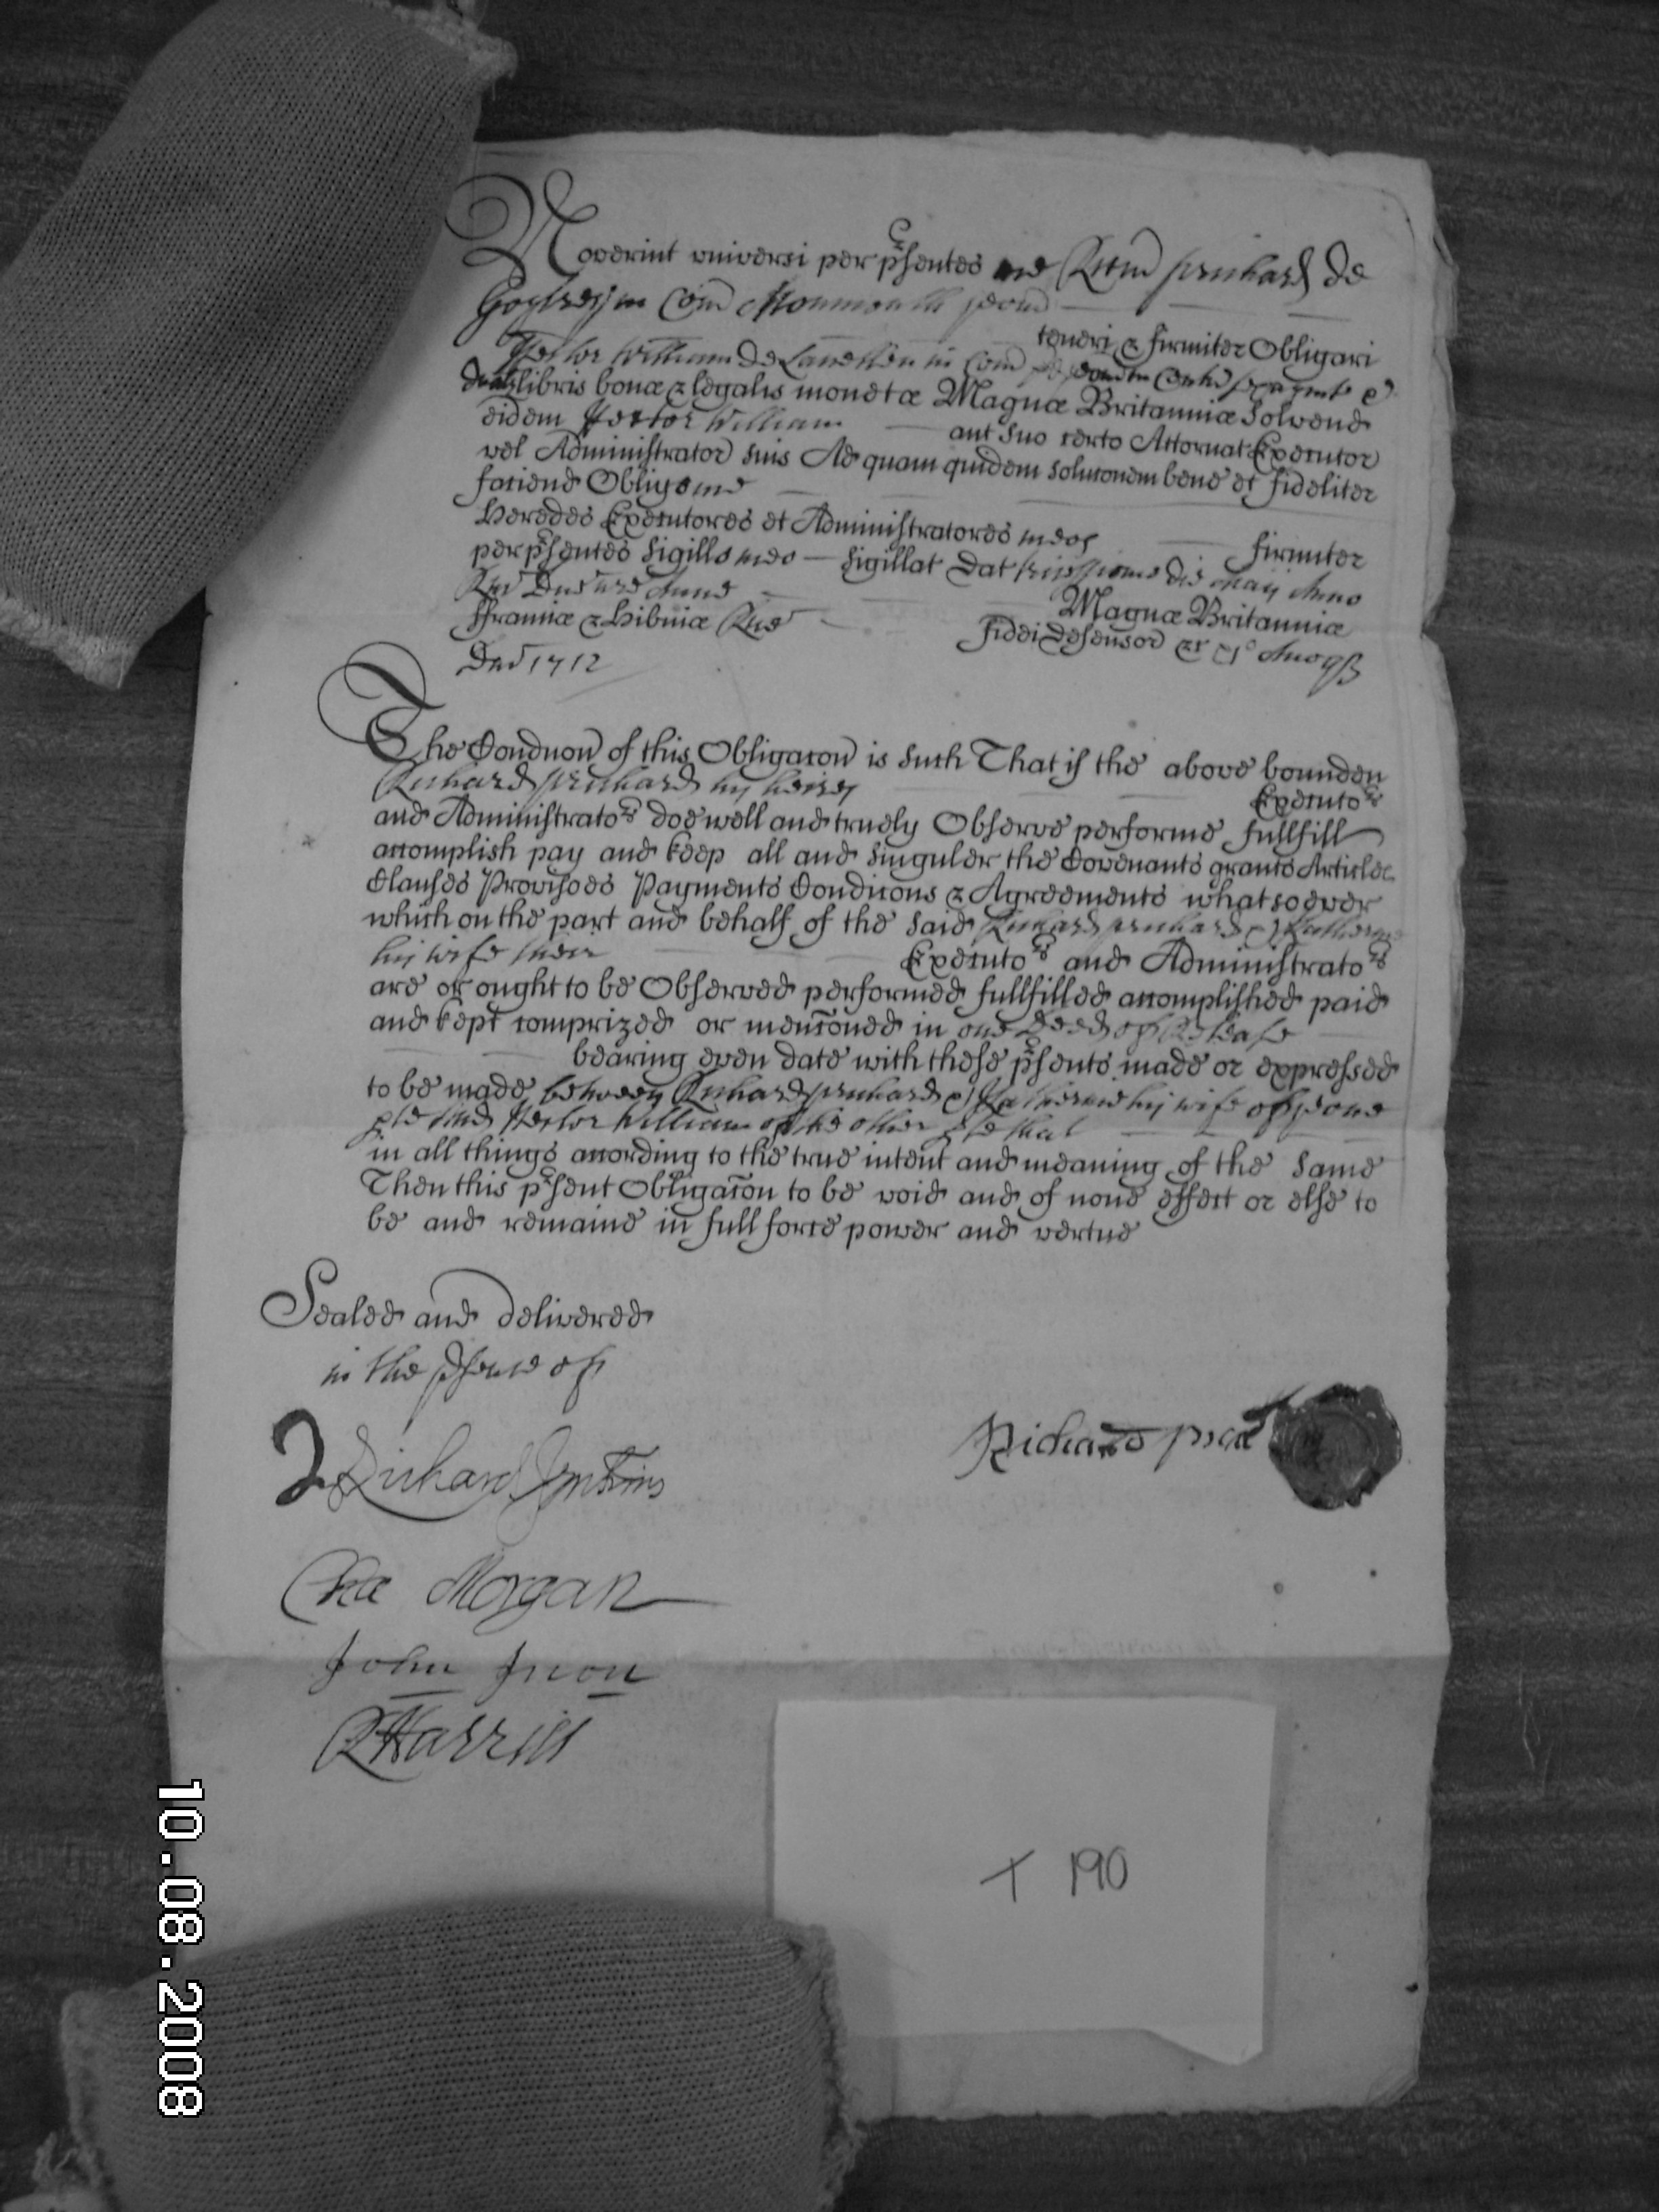 Noverint universi per p̃sentes me Ricũm prichard de
Goytrey in Com̃ Monmouth
teneri & firmiter Obligari
Hector William de in Com̃
libris bonæ & legalis monetæ Magnæ Britanniæ Solvend
eidem Hector William aut suo certo Attornat Executor
vel Administrator suis Ad quam quidem soluconem bene et fideliter
faciend Obligo me
Heredes Executores et Administratores meos firmiter
per p̃sentes Sigillo meo Sigillat Dat die Maij Anno
Dnẽ nrẽ Anne Magnæ Britanniæ
ffranciæ & Hibniæ Rnẽ fidei Defensor &c Annoqȝ
Dnĩ 1712
The Condicon of this Obligacon is such That if the above bounden
Richard prichard his heires Executors
and Administrators doe well and truely Observe performe fullfill
accomplish pay and keep all and singuler the Covenants grants Articles
Clauses Provisoes Payments Condicons & Agreements whatsoever
which on the part and behalf of the said Richard prichard & Katherine
his wife their Executors and Administrators
are or ought to be Observed performed fullfilled accomplished paid
and kept comprized or menc̃oned in one Deed of Release
bearing even date with these p̃sents made or expressed
to be made between Richard prichard & Katherine his wife of the one
pte and Hector William of the other pte that
in all things according to the true intent and meaning of the same
Then this p̃sent Obligac̃on to be void and of none effect or else to
be and remaine in full force power and vertue
Sealed and delivered
in the p̃sence of
Richard Jenkins
Richard
Cha Morgan
John
R Harris
T 190
10.08.2008